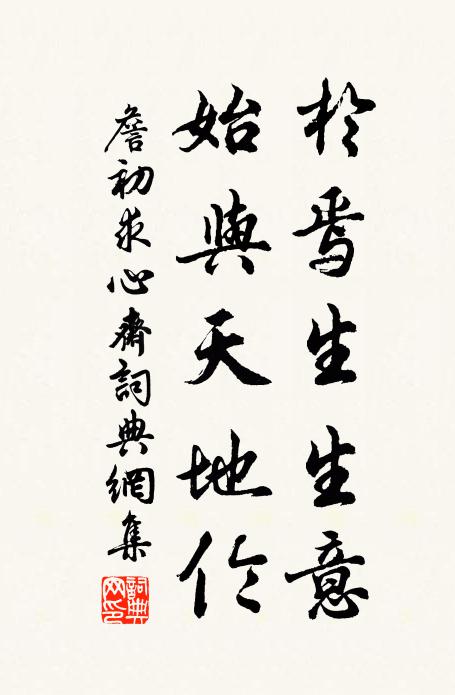 於焉生生意
始與天地
詹初求心齋詞典網集
詞典
网印